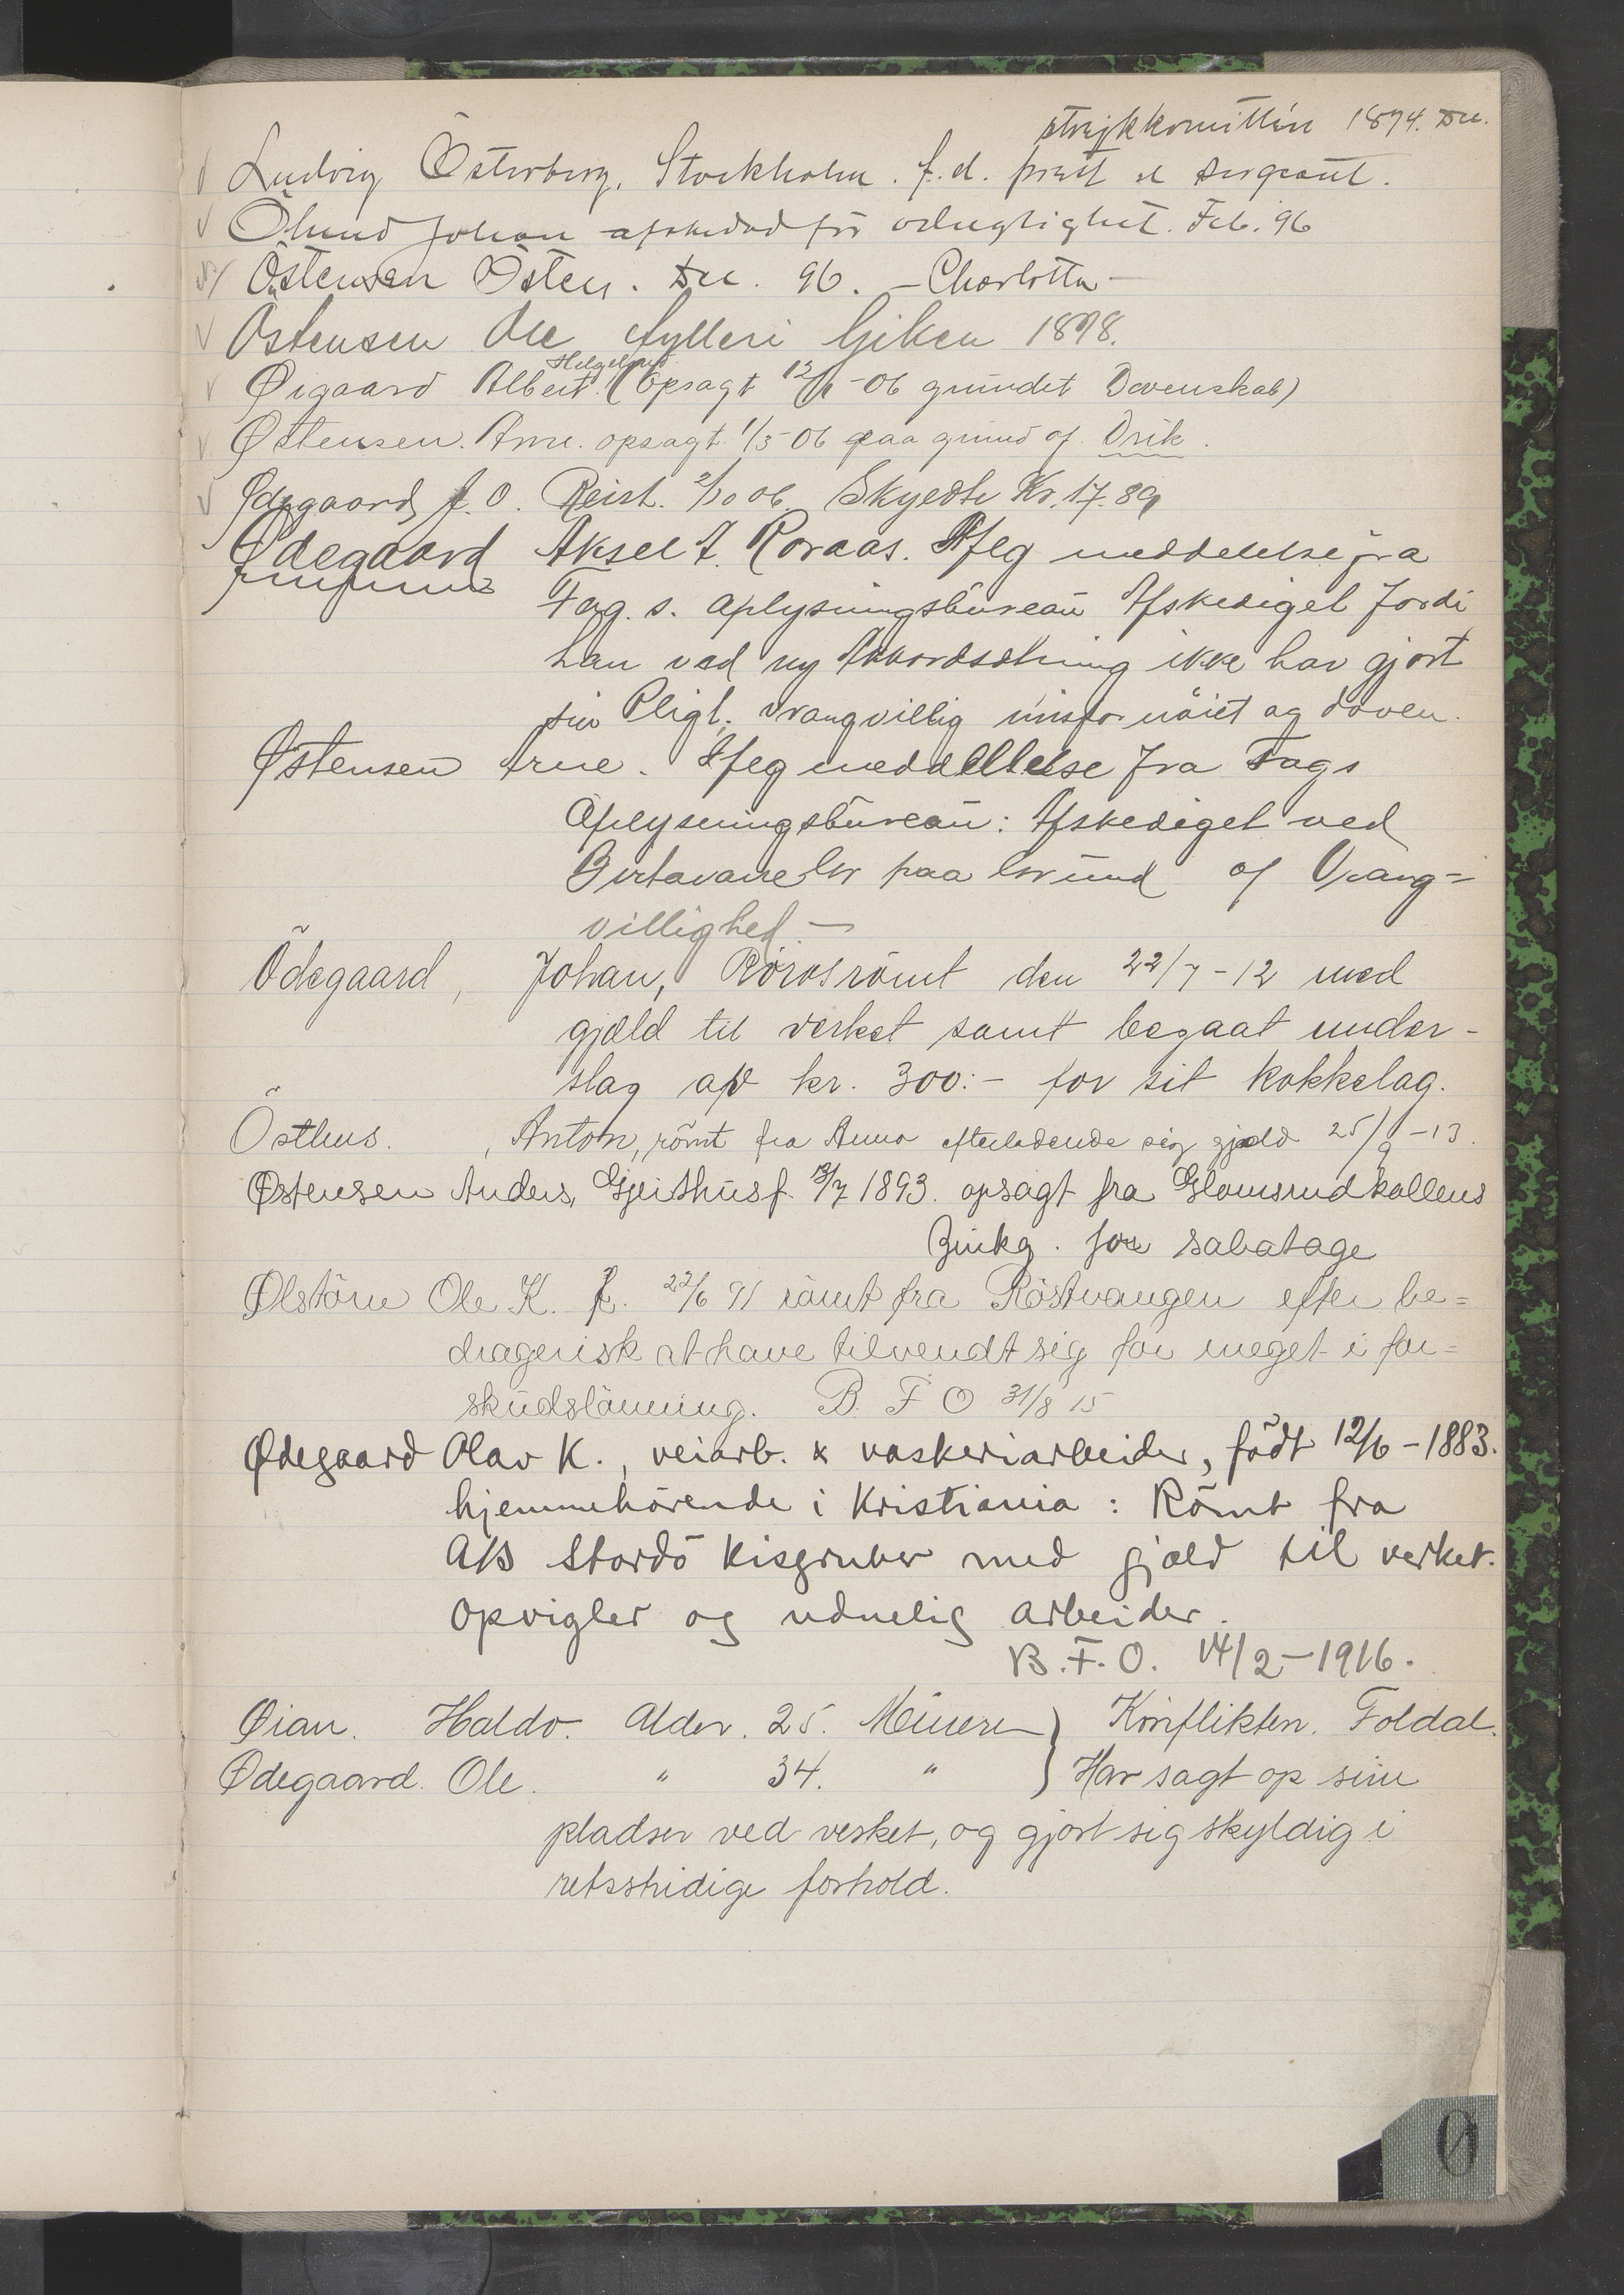 strejkkomittén 1894. Dec.
Ludvig Österberg, Stockholm. f.d. präst et sergeant.
Ölund Johan afskedad för oduglighet. Feb. 96
Östensen Östen. Dec. 96. - Charlotta -
Östensen Ole fylleri Giken 1898.
Helgeland
Øigaard Albert. (Opsagt 12/1-06 grundet Dovenskab)
Østensen. Arne. opsagt 1/5-06 paa grund af Drik.
Ødegaard, J. O. Reist. 2/10 06. Skyedte Kr. 17.89
Ødegaard Aksel A. Roraas. Ifleg meddelelse fra
Fag. s. Oplysningsbureau Afskediget fordi
han ved ny Akkordsætning ikke har gjort
sin Pligt. vrangvillig misfornöiet og doven.
Østensen Arne. Ifleg meddelelse fra Fags
Oplysningsbureau: Afskediget ved
Birtavarre Gr paa Grund af Vrang=
villighed. -
Ödegaard, Johan, Röros römt den 22/7-12 med
gjæld til verket samt begaat under-
slag af kr. 300:- for sit kokkelag.
Östhus. , Anton, römt fra Anna efterladende sig gjæld 25/9-13.
Østensen Anders, Gjeithus f. 13/7 1893. opsagt fra Glomsrudkollens
Zinkg. for sabatage
Ølstörn Ole K. f. 22/6 91 römt fra Röstvangen efter be=
dragerisk at have tilvendt sig for meget i for=
skudslönning. B. F O 31/8 15
Ødegaard Olav K., veiarb. & vaskeriarbeider, födt 12/6-1883.
hjemmehörende i Kristiania: Römt fra
A/S Stordö Kisgruber med gjæld til verket.
Opvigler og uduelig arbeider.
B.F.O. 14/2-1916.
Øian. Haldo. Alder. 25. Minerer } Konflikten. Foldal.
Ødegaard. Ole. " 34. " } Har sagt op sine
pladser ved verket, og gjort sig skyldig i
retsstridige forhold.
Ø